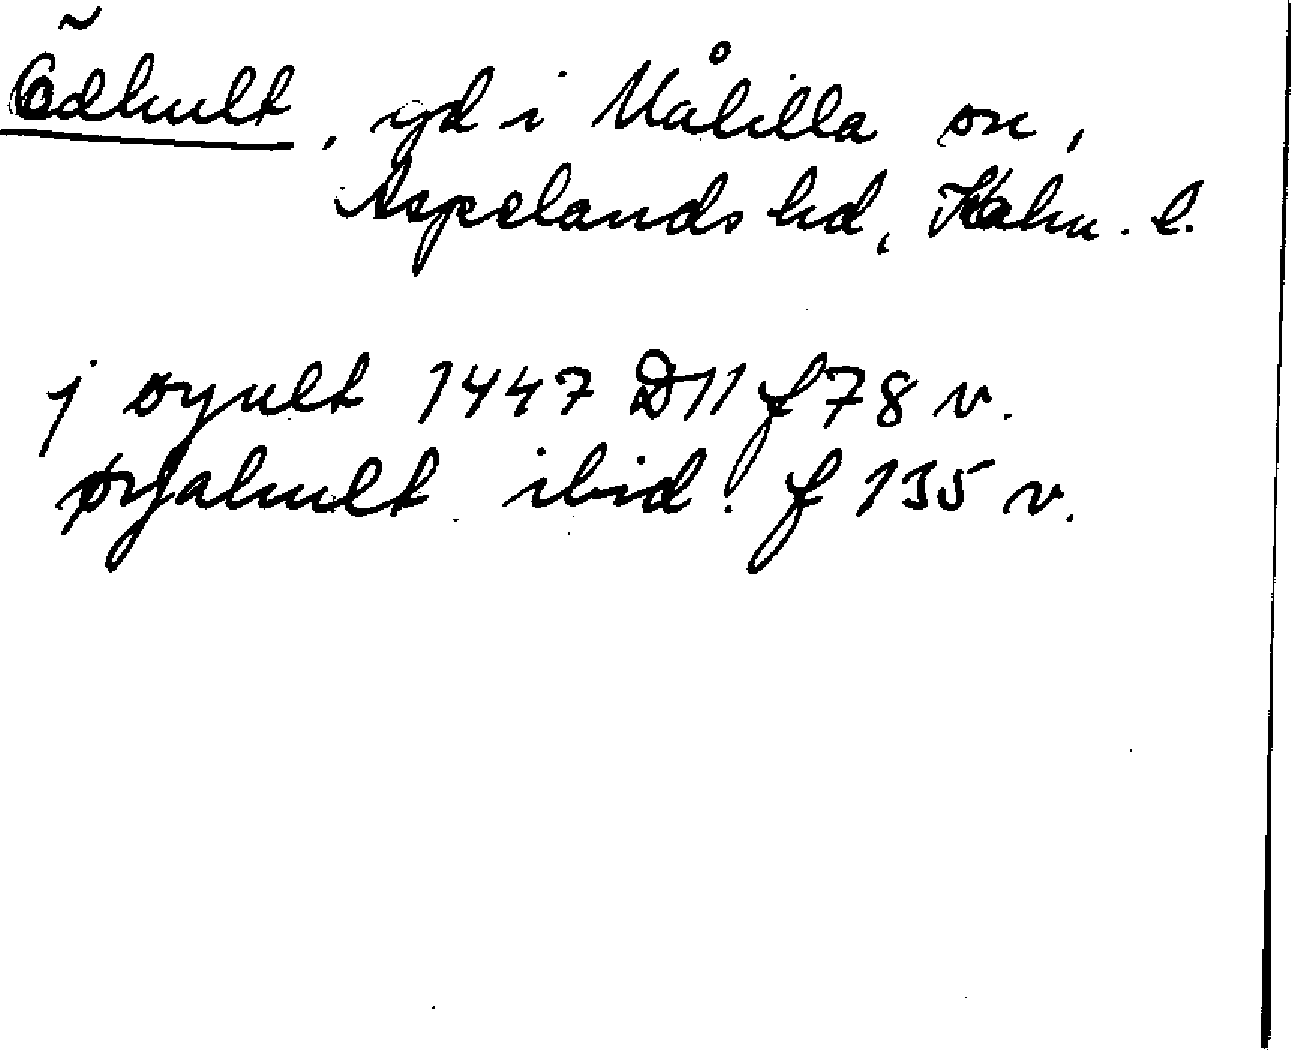 Ödhult, gd i Målilla sn,
Aspelands hd, Kalm. l.
j øyult 1447 D11 f 78 v.
øryahult ibid. f 135 v.